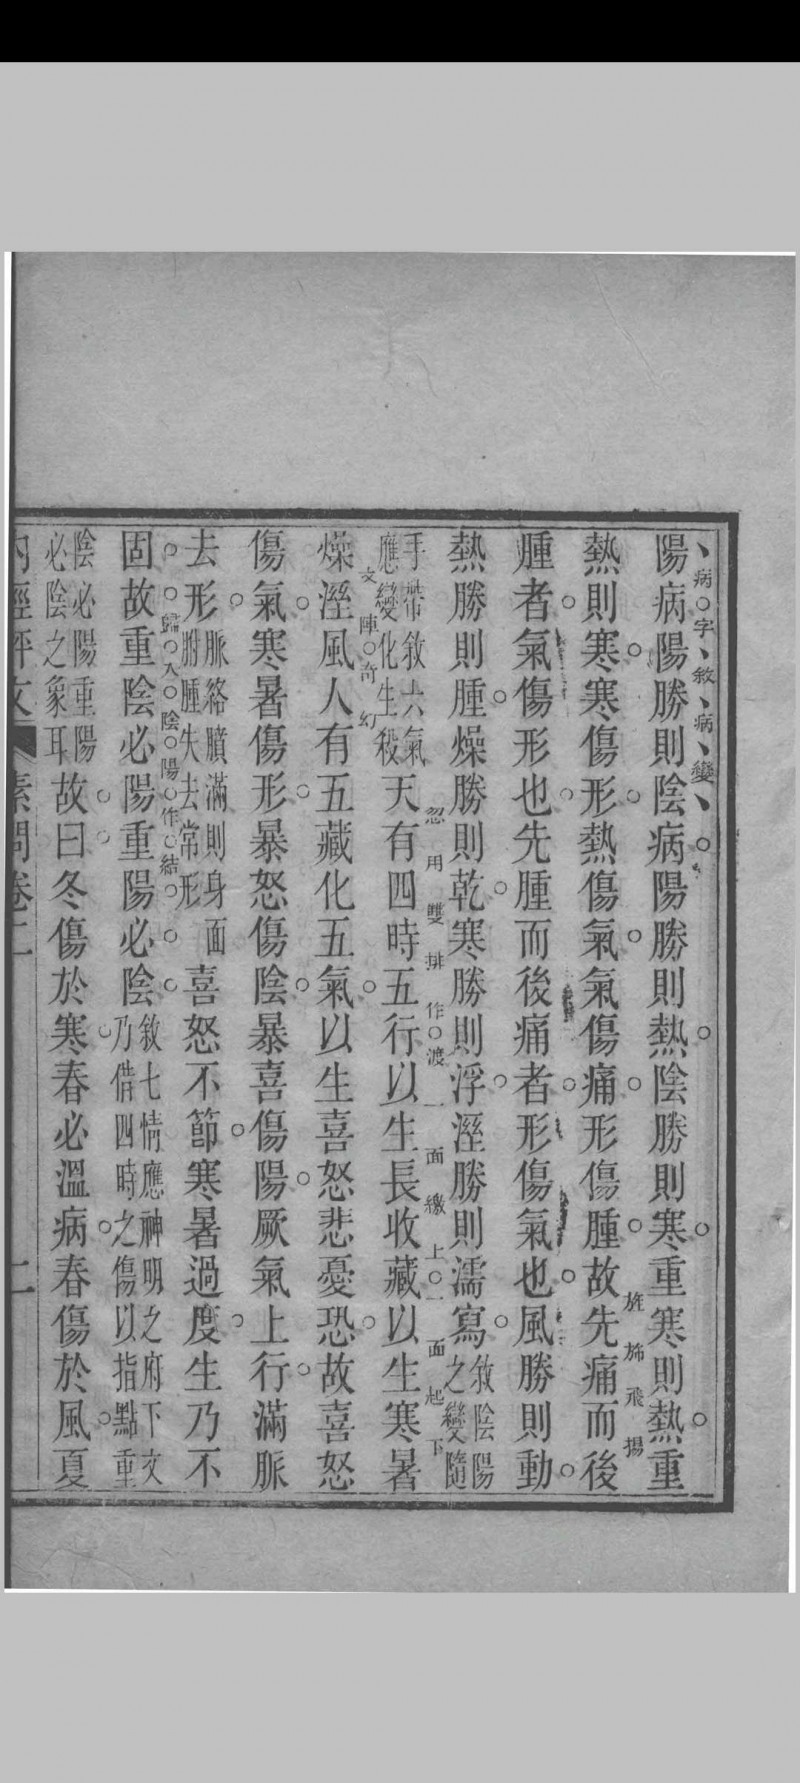 陽病陽勝則陰病陽勝則熱陰勝則寒重寒則熱重
病字敘病變
熱則寒寒傷形熱傷氣氣傷痛形傷腫故先痛而後
旌旆飛揚
腫者氣傷形也先腫而後痛者形傷氣也風勝則動
熱勝則腫燥勝則乾寒勝則浮溼勝則濡寫敘陰陽之變隨
忽用雙排作渡一面繳上一面起下
手帶敘六氣應變化生殺天有四時五行以生長收藏以生寒暑
文陣奇幻
燥溼風人有五藏化五氣以生喜怒悲憂恐故喜怒
傷氣寒暑傷形暴怒傷陰暴喜傷陽厥氣上行滿脈
去形脈絡䐜滿則身面胕腫失去常形喜怒不節寒暑過度生乃不
歸入陰陽作結
固故重陰必陽重陽必陰敘七情應神明之府下文乃借四時之傷以指點重
陰必陽重陽必陰之象耳故曰冬傷於寒春必溫病春傷於風夏
內經評文 素問卷二 二